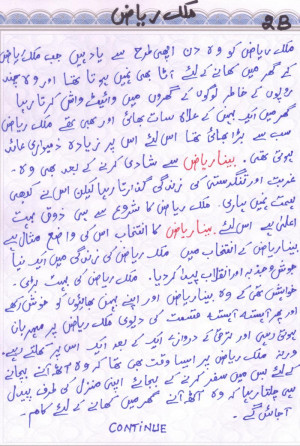 ملک ریاض
28
ملک ریاض کو وہ دن اچھی طرح سے یاد ہیں جب ملک ریاض
کے گھر میں کھانے کے لئے آٹا بھی نہیں ہوتا تھا اور وہ چند
روپوں کے خاطر لوگوں کے گھروں میں وائیٹ واش کرتا رہا
گھر میں ایک بہن کے علاوہ سات بھائی اور بھی تھے ملک ریاض
سب سے بڑا بھائی تھا اس لئے اس پر زیادہ ذمہ داری عائد
ہوتی تھی۔ بینا ریاض سے شادی کرنے کے بعد بھی وہ
غربت اور تنگدستی کی زندگی گذارتا رہا لیکن اس نے کبھی
ہمت نہیں ہاری۔ ملک ریاض کا شروع سے ہی ذوق بہت
اعلیٰ ہے اس لئے بینا ریاض کا انتخاب اس کی واضع مثال ہے
بینا ریاض کے انتخاب میں ملک ریاض کی زندگی میں ایک نیا
جوش و جذبہ اور انقلاب پیدا کر دیا۔ ملک ریاض کی بہت بڑی
خواہش تھی کہ وہ بینا ریاض اور اپنے بہن بھائیوں کو خوش رکھے
اور پھر آہستہ آہستہ قسمت کی دیوی ملک ریاض پر مہربان
ہوتی رہی اور ترقی کے دروازے ایک کے بعد ایک اس پر کھلتے رہے۔
ورنہ ملک ریاض پر ایسا وقت بھی تھا کہ وہ آٹھ آنے بچانے
کے لئے بس میں سفر کرنے کے بجائے اپنی منزل کی طرف پیدل
ہی چلتا رہا کہ وہ آٹھ آنے گھر میں کھانے کے لئے کام
آجائیں گے۔
CONTINUE